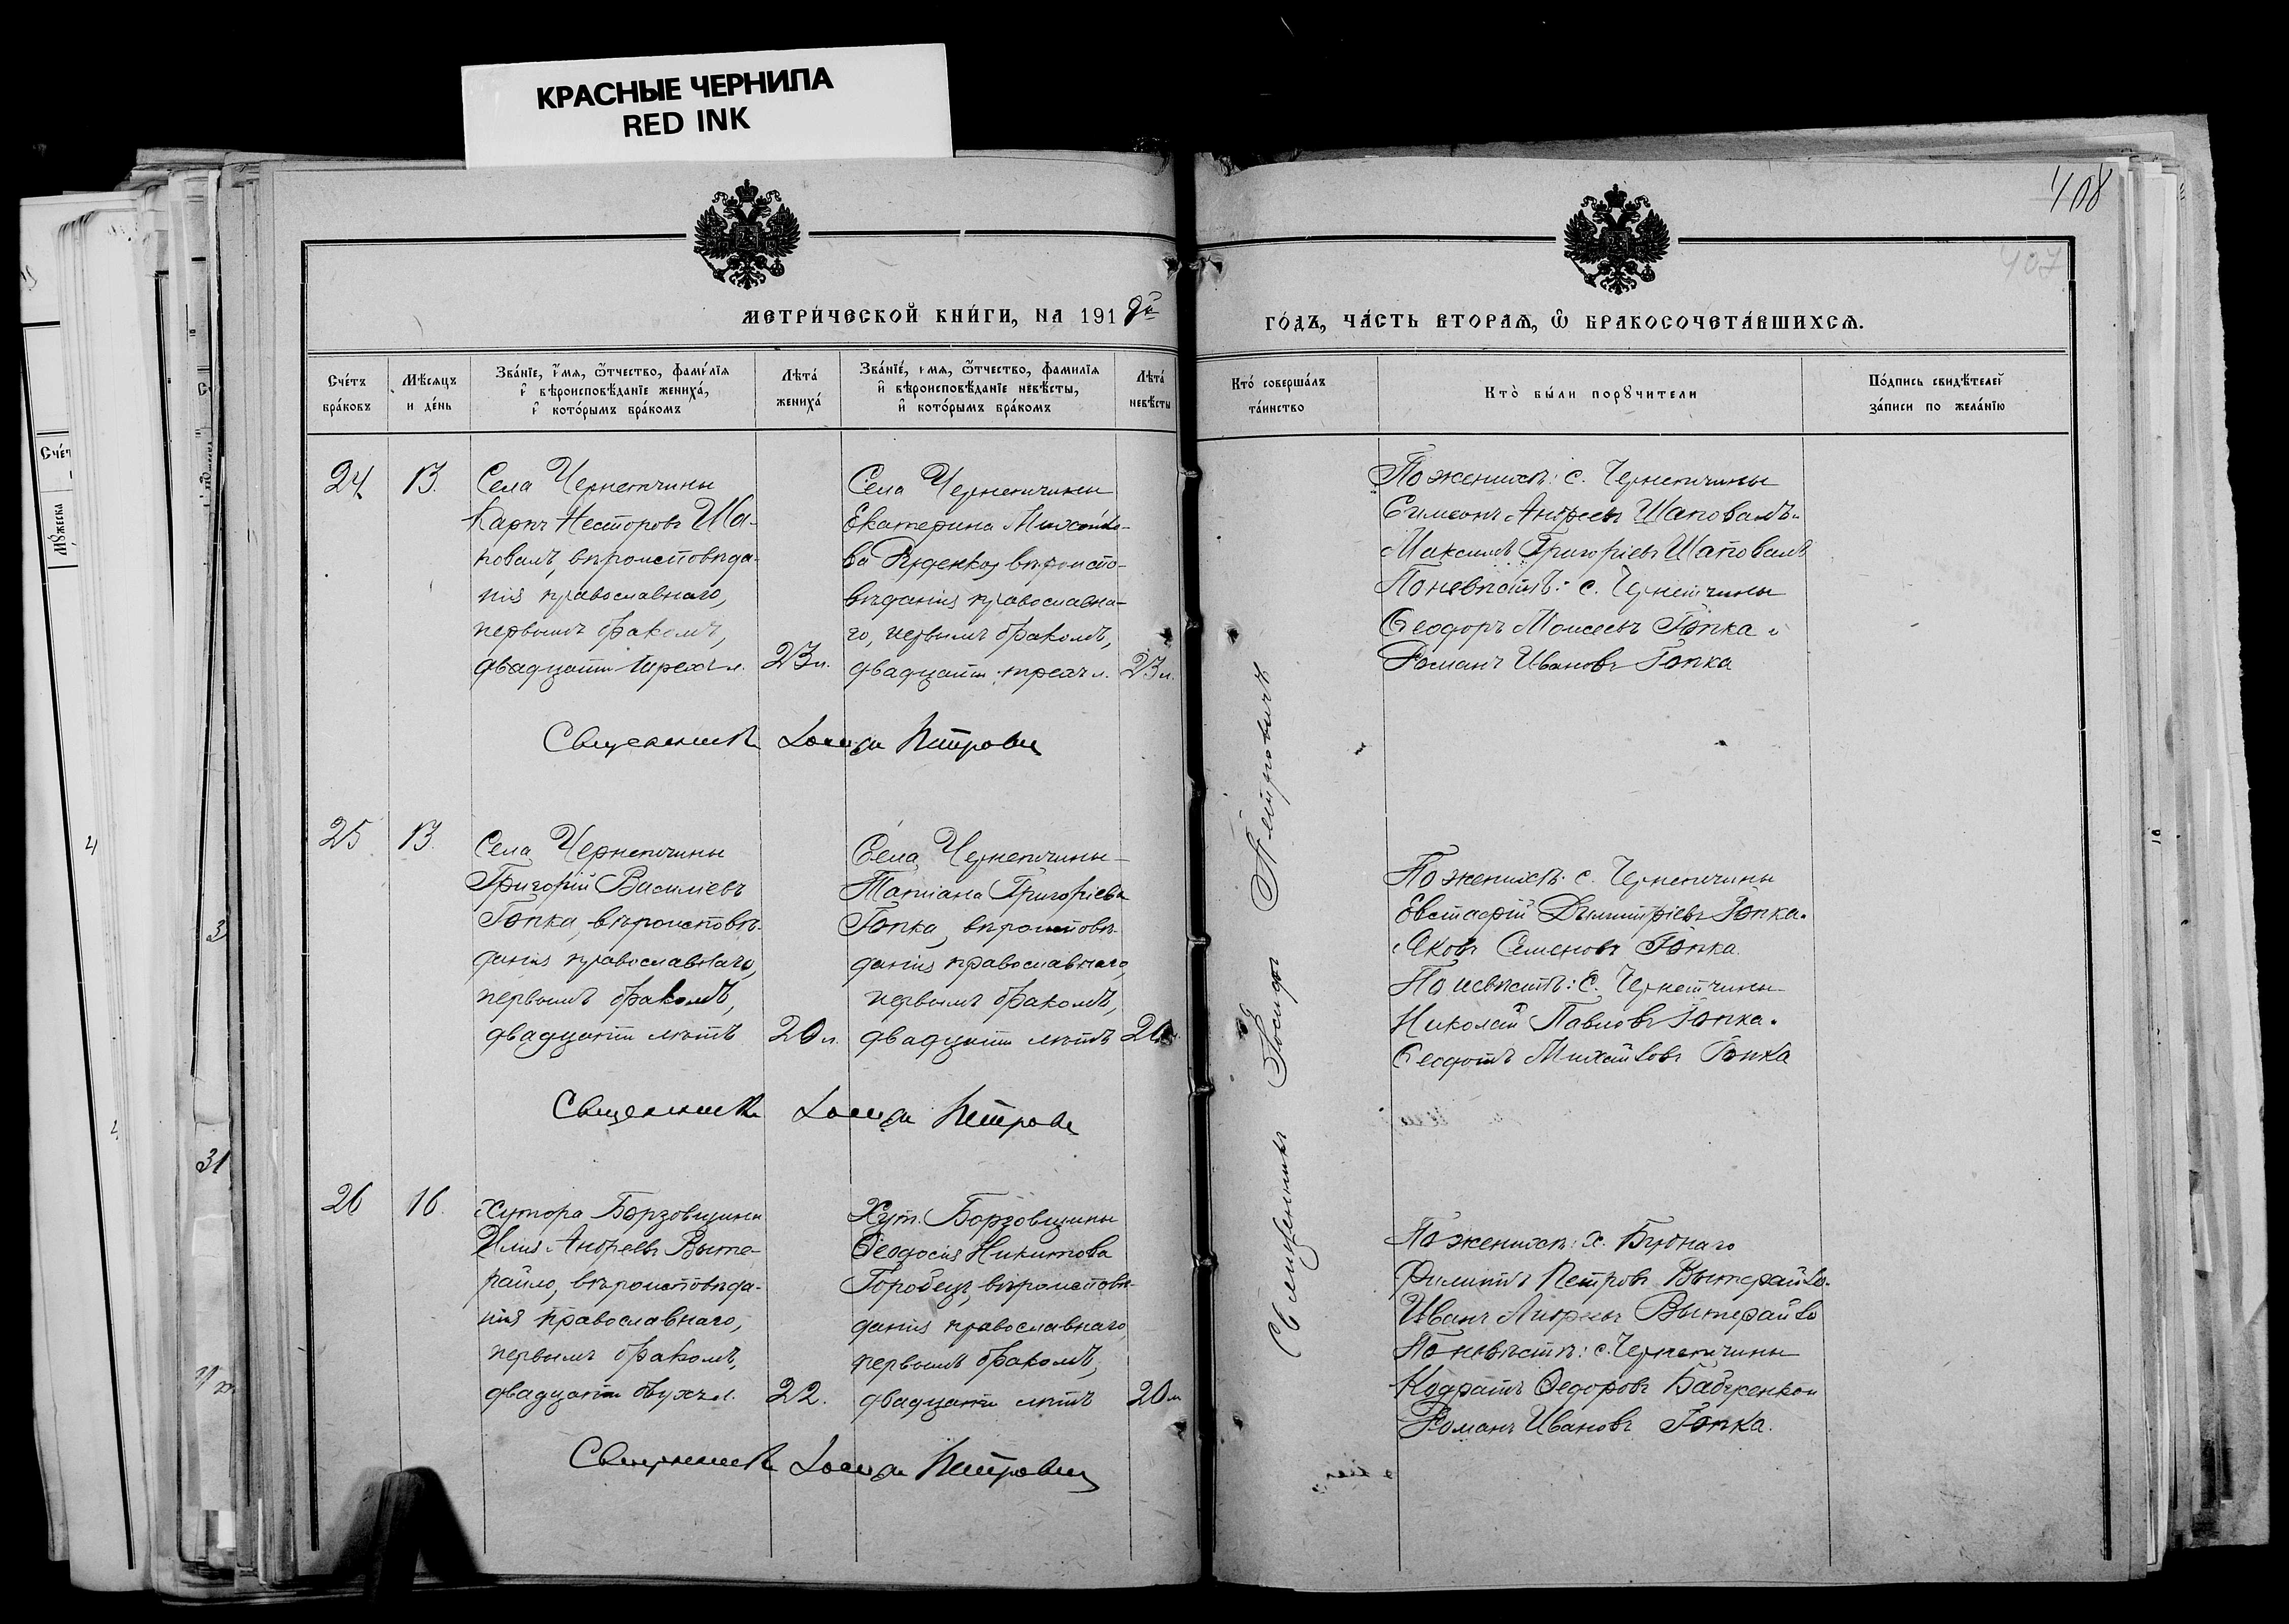 КРАСНЫЕ ЧЕРНИЛА
RED INK
408
407
МЕТРИ́ЧЕСКОЙ КНИ́ГИ, НА 191
ГО́ДЪ, ЧА́СТЬ ВТОРАѦ, Ѡ҆ БРАКОСОЧЕТА́ВШИХСѦ.
Сче́тъ
бра́ковъ
Мѣ́сяцъ
и де́нь
Зва́нїе, и҆́мя, ѻ҆́тчество, фами́лїя
и҆ вѣроисповѣ́данїе жениха́,
и҆ кото́рымъ бра́комъ
Лѣта́
жениха́
Зва́нїе, и҆мя, ѻ҆́тчество, фамилїя
и҆ вѣроисповѣ́данїе невѣ́сты,
и҆ кото́рымъ бра́комъ
Лѣта́
невѣ́сты
Кто́ соверша́лъ
та́инство
Кто̀ бы́ли порꙋчители
По́дпись свидѣ́телей
за́писи по жела́нїю
24
13.
Села Чернетчины
Карпъ Несторовъ Ша-
повалъ, вѣроисповѣда-
нія православнаго,
первымъ бракомъ,
двадцати трехъ л.
23 л.
Села Чернетчины
Екатерина Михайло-
ва Руденко, вѣроиспо-
вѣданія православна-
го, первымъ бракомъ,
двадцати трехъ л.
23 л.
По женихѣ: с. Чернетчины
Симеонъ Андреевъ Шаповалъ и
Максимъ Григоріевъ Шаповалъ
По невѣстѣ: с. Чернетчины
Ѳеодоръ Моисеевъ Гопка и
Романъ Ивановъ Гопка
Священникъ Іосифъ Петровичъ
25
13.
Села Чернетчины
Григорій Василіевъ
Гопка, вѣроисповѣ-
данія православнаго,
первымъ бракомъ,
двадцати лѣтъ
20 л.
Села Чернетчины
Татіана Григоріева
Гопка, вѣроисповѣ-
данія православнаго,
первымъ бракомъ,
двадцати лѣтъ
20
По женихѣ: с. Чернетчины
Евстафій Димитріевъ Гопка и
Яковъ Семеновъ Гопка.
По невѣстѣ: с. Чернетчины
Николай Павловъ Гопка и
Ѳеодотъ Михайловъ Гопка
Священникъ Іосифъ Петровичъ
26
16.
Хутора Борзовщины
Илія Андреевъ Выте-
райло, вѣроисповѣда-
нія православнаго,
первымъ бракомъ,
двадцати двухъ л.
22.
Хут. Борзовщины
Ѳеодосія Никитова
Горобецъ, вѣроисповѣ-
данія православнаго,
первымъ бракомъ,
двадцати лѣтъ
20 л.
По женихѣ: х.
Филиппъ Петровъ Вытерайло и
Иванъ Андреевъ Вытерайло
По невѣстѣ: с. Чернетчины
Кодратъ Ѳедоровъ Бабченко и
Романъ Ивановъ Гопка.
Священникъ Іосифъ Петровичъ
Священникъ Іосифъ Петровичъ
Сче́т
Мꙋ́жеска
4
3
31